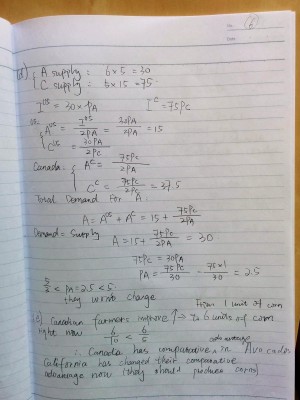 A supply: 6×5=30
C supply: 5×15=75
I^US = 30×PA I^C = 75Pc
A^US = I^US/2PA = 30PA/2PA = 15
C^US = 30PA/2Pc
Canada: A^C = 75Pc/2PA
C^C = 75Pc/2Pc = 37.5
Total Demand For A:
A = A^US + A^C = 15 + 75Pc/2PA
Demand = Supply
A = 15 + 75Pc/2PA = 30
75Pc = 30PA
PA = 75Pc/30 = 75×1/30 = 2.5
< PA = 2.5 < 5
they won't change
From 1 unit of corn
Canadian farmers improve ↑→ to 6 units of corn
right now 6/10 < 6/5
advantage
∴ Canada has comparative in Avocados
California has changed their comparative
advantage now (they should produce corn)